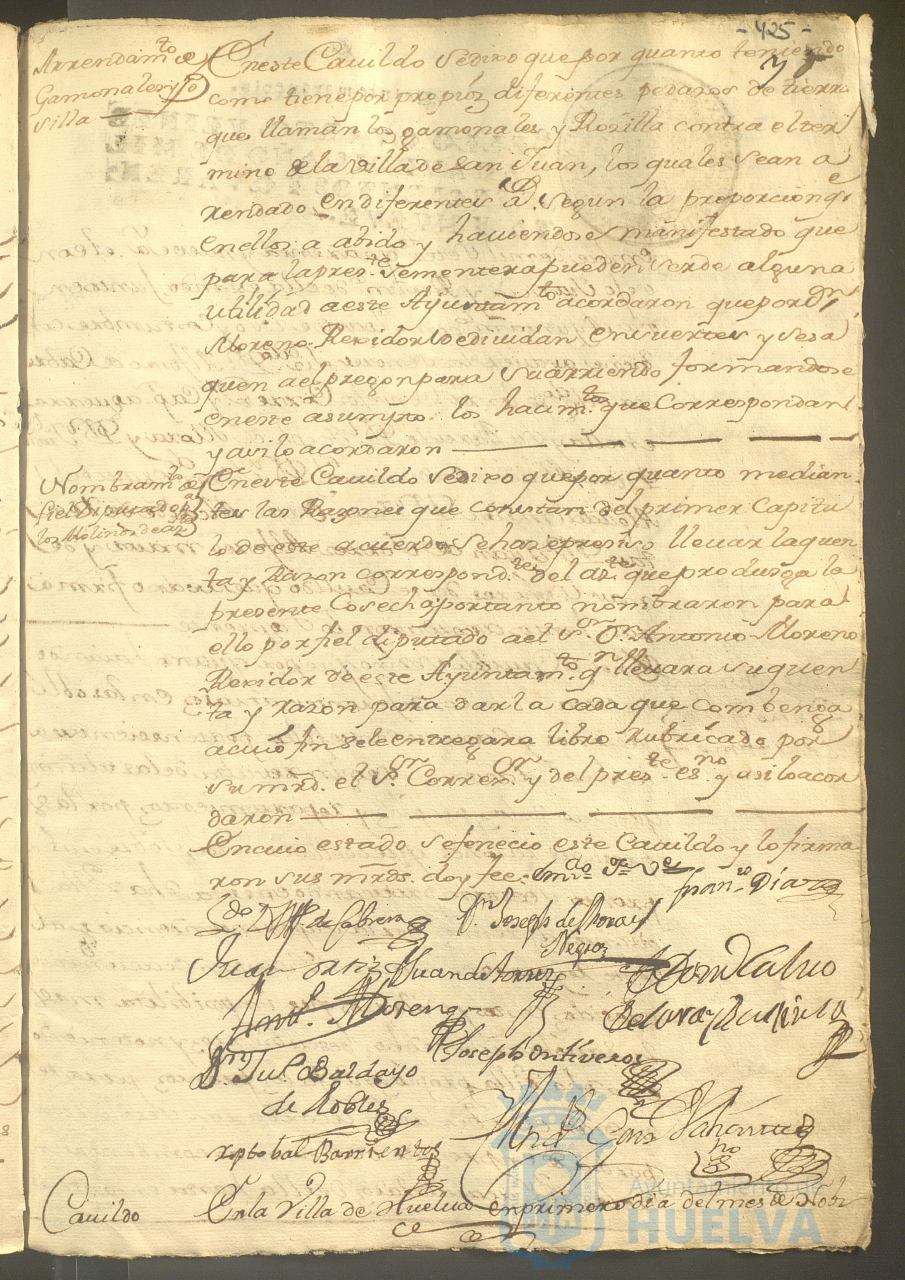 - 425 -
Arrendam.to de
Gamonales y Ro
silla
En este Cavildo se dixo que por quanto teniendo
como tiene por propios diferentes pedazos de tierra
que llaman los gamonales y Rosilla contra el ter
mino de la villa de San Juan, los quales se an a
rrendado en diferentes segun la proporcion q.e
en ellos a abido y haviendose manifestado que
para la pres.te sementera pueden ser de alguna
utilidad a este Ayuntam.to acordaron que por D.n
Moreno Rexidor lo dividan en suertes y se sa
quen a el pregon para su arriendo formandose
en este asumpto los hacim.tos que Correspondan
y asi lo acordaron
Nombram.to de
fiel Diputado
los Molinos de az.te
En este Cavildo se dixo que por quanto median
te las Razones que constan del primer Capitu
lo de este acuerdo se hase presiso llevar la quen
ta y Razon correspond.te del az.te que produsga la
presente Cosecha portanto nombraron para
ello por fiel diputado a el S.or D.n Antonio Moreno
Rexidor de este Ayuntam.to q.n llevara su quen
ta y razon para darla cada que combenga
a cuio fin se le entregara libro rubricado por
su mrd. el S.or Correx.or y del pres.te es.no y asi lo acor
daron
En cuio estado se fenecio este Cavildo y lo firma
ron sus mrds. doy fee
Fran.co Diaz
de Cabrera
D.n Joseph de Mora y
Negro
Juan Ortiz
Juan de
Ant.o Moreno
Joseph Ontiveros
Baldayo
de Robles
xptobal Barrientos
Cavildo
En la Villa de Huelva en primero dia del mes de Nobi
Ayuntamiento de
HUELVA